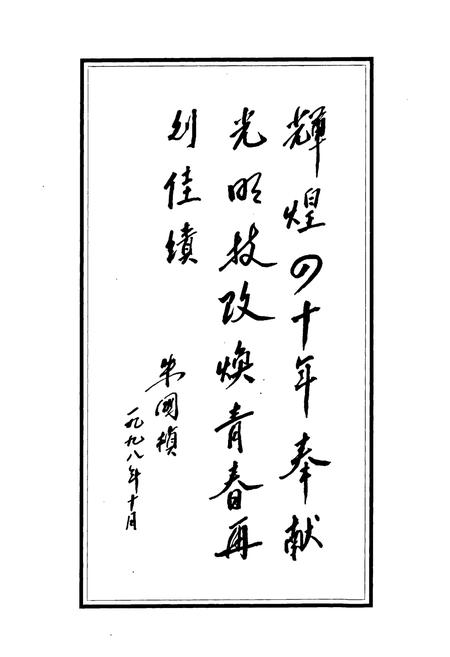 輝煌四十年奉献
光明技改焕青春再
创佳績
朱國楨
一九九八年十月